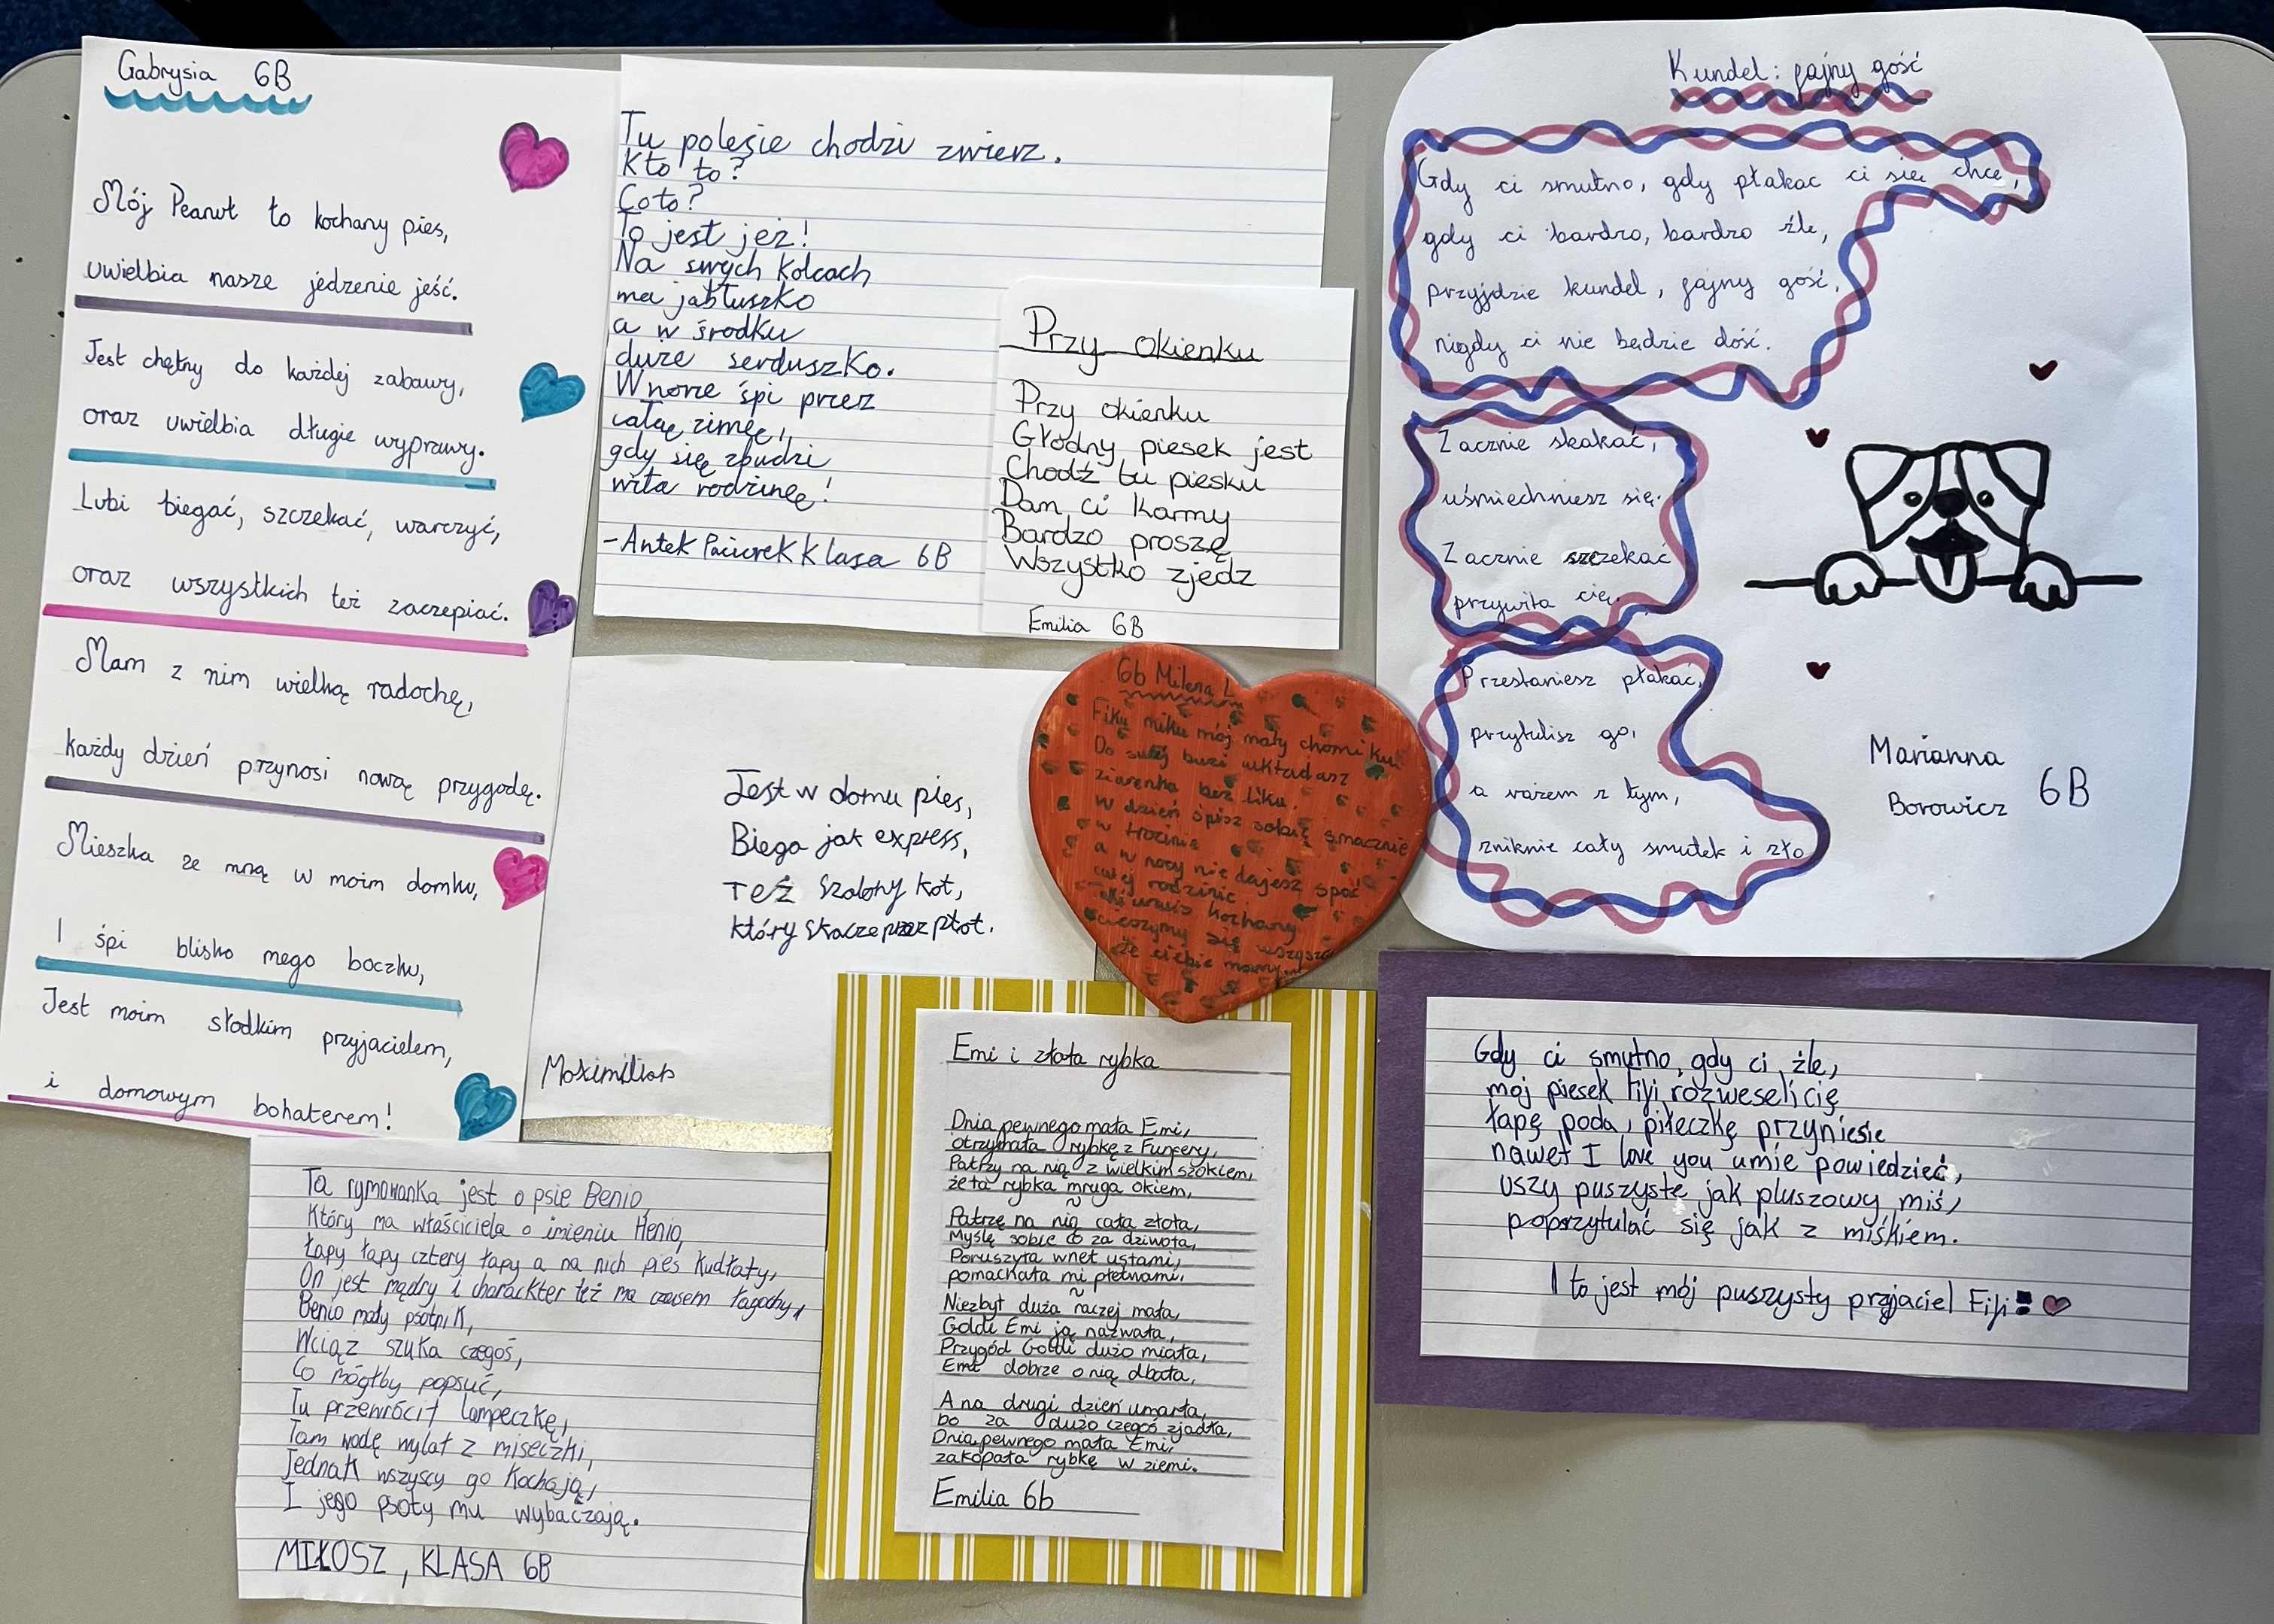 Gabrysia 6B
Mój Peanut to kochany pies,
uwielbia nasze jedzenie jeść.
Jest chętny do każdej zabawy,
oraz uwielbia długie wyprawy.
Lubi biegać, szczekać, warczyć,
oraz wszystkich też zaczepiać.
Mam z nim wielką radochę,
każdy dzień przynosi nową przygodę.
Mieszka ze mną w moim domku,
I śpi blisko mego boczku,
Jest moim słodkim przyjacielem,
i domowym bohaterem!
Tu polesie chodzi zwierz.
Kto to?
Co to?
To jest jeż!
Na swych kolcach
ma jabłuszko
a w środku
duże serduszko.
W norze śpi przez
całą zimę,
gdy się zbudzi
wita rodzinę!
- Antek Paciorek Klasa 6B
Przy okienku
Przy okienku
Głodny piesek jest
Chodź tu piesku
Dam ci karmy
Bardzo proszę
Wszystko zjedz
Emilia 6B
Kundel: fajny gość
Gdy ci smutno, gdy płakac ci się chce,
gdy ci bardzo, bardzo źle,
przyjdzie kundel, fajny gość,
nigdy ci nie będzie dość.
Zacznie skakać,
uśmiechniesz się.
Zacznie szczekać
przywita cię.
Przestaniesz płakać,
przytulisz go,
a razem z tym,
zniknie cały smutek i zło
Marianna
Borowicz 6B
Jest w domu pies,
Biega jak express,
Też szalony kot,
który skacze przez płot.
Maximilian
6b Milena L
Fiku miku mój mały chomiku
Do swej buzi wkładasz
ziarenka bez liku.
W dzień śpisz sobie smacznie
w trocinie
a w nocy nie dajesz spać
całej rodzinie
kochany
cieszymy się wszyscy
że ciebie mamy
Emi i złota rybka
Dnia pewnego mała Emi,
otrzymała rybkę z Funfery,
Patrzy na nią z wielkim szokiem,
że ta rybka mruga okiem,
~
Patrzę na nią cała złota,
Myślę sobie co za dziwota,
Poruszyła wnet ustami,
pomachała mi płetwami.
~
Niezbyt duża raczej mała,
Goldi Emi ją nazwała,
Przygód Goldi dużo miała,
Emi dobrze o nią dbała,
A na drugi dzień umarła,
bo za dużo czegoś zjadła,
Dnia pewnego mała Emi,
zakopała rybkę w ziemi.
Emilia 6b
Gdy ci smutno, gdy ci źle,
mój piesek Fifi rozweseli cię
łapę poda, piłeczkę przyniesie
nawet I love you umie powiedzieć,
uszy puszyste jak pluszowy miś,
poprzytulać się jak z miśkiem.
I to jest mój puszysty przyjaciel Fifi!
Ta rymowanka jest o psie Benio,
Który ma właściciela o imieniu Henio,
Łapy łapy cztery łapy a na nich pies kudłaty,
On jest mądry i charakter też ma czasem łagodny,
Benio mały psotnik,
Wciąż szuka czegoś,
Co mógłby popsuć,
Tu przewrócił lampeczkę,
Tam wodę wylał z miseczki,
Jednak wszyscy go kochają,
I jego psoty mu wybaczają.
MIŁOSZ, KLASA 6B